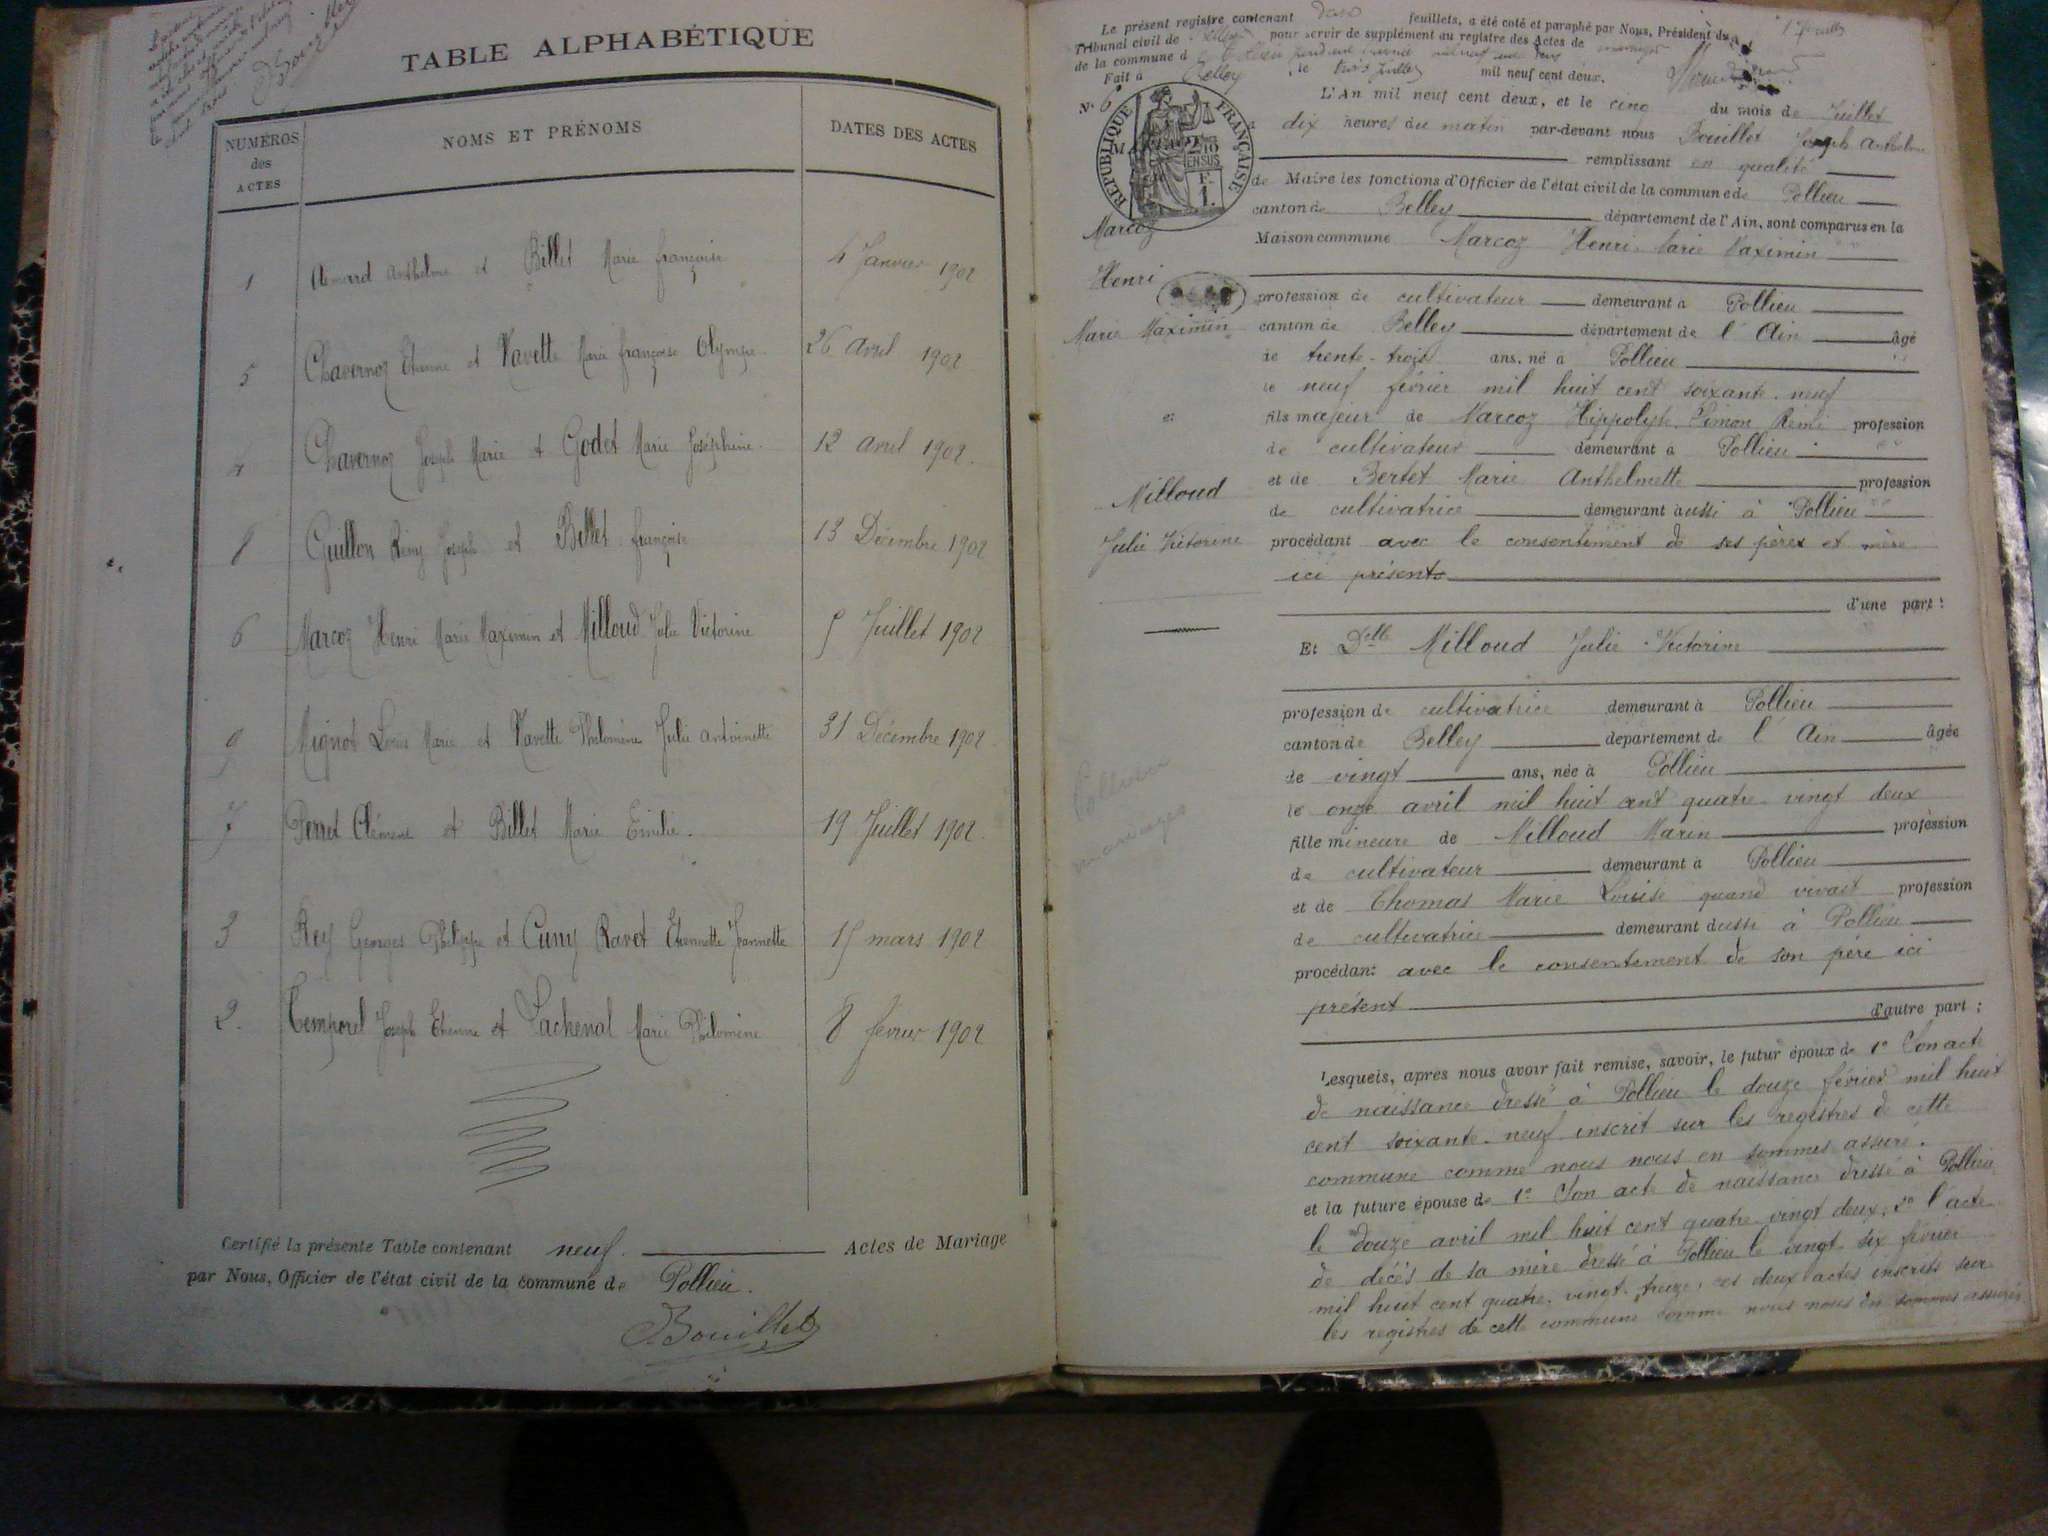 TABLE ALPHABÉTIQUE
NUMÉROS des ACTES
NOMS ET PRÉNOMS
DATES DES ACTES
1 Aimard Anthelme et Billet Marie françoise 4 Janvier 1902
5 Chavernoz Etienne et Vavette Marie françoise Olympe 26 Avril 1902
4 Chavernoz Joseph Marie et Godet Marie Joséphine 12 Avril 1902
8 Guillon Rémy Joseph et Billet françoise 13 Décembre 1902
6 Marcoz Henri Marie Maximin et Milloud Julie Victorine 5 Juillet 1902
9 Mignot Louis Marie et Vavette Philomène Julie Antoinette 31 Décembre 1902
7 Perret Clément et Billet Marie Emilie. 19 Juillet 1902
3 Rey Georges Philippe et Cuny Ravet Etiennette Jeannette 15 mars 1902
2. Temporel Joseph Etienne et Lachenal Marie Philomène 8 février 1902
Certifié la présente Table contenant neuf. Actes de Mariage
par Nous, Officier de l'état civil de la commune de Pollieu.
JBouillet
Le présent registre contenant deux feuillets, a été coté et paraphé par Nous, Président du
Tribunal civil de Belley pour servir de supplément au registre des Actes de mariage
de la commune d pendant l'année mil neuf cent deux
Fait à Belley, le trois Juillet mil neuf cent deux.
1er feuillet
N° 6
RÉPUBLIQUE FRANÇAISE
2/10 EN SUS
F. 1.
Marcoz
Henri
Marie Maximin
et
Milloud
Julie Victorine
Pollieu
mariages
L'An mil neuf cent deux, et le cinq du mois de Juillet
dix heures du matin par-devant nous Bouillet Joseph Anthelme
remplissant en qualité
de Maire les fonctions d'Officier de l'état civil de la commune de Pollieu
canton de Belley département de l'Ain, sont comparus en la
Maison commune Marcoz Henri Marie Maximin
profession de cultivateur demeurant à Pollieu
canton de Belley département de l'Ain âgé
de trente-trois ans, né à Pollieu
le neuf février mil huit cent soixante-neuf
fils majeur de Marcoz Hippolyte Simon Rémi profession
de cultivateur demeurant à Pollieu
et de Bertet Marie Anthelmette profession
de cultivatrice demeurant aussi à Pollieu
procédant avec le consentement de ses père et mère
ici présents
d'une part :
Et Delle Milloud Julie Victorine
profession de cultivatrice demeurant à Pollieu
canton de Belley département de l'Ain âgée
de vingt ans, née à Pollieu
le onze avril mil huit cent quatre-vingt deux
fille mineure de Milloud Marin profession
de cultivateur demeurant à Pollieu
et de Thomas Marie Louise quand vivait profession
de cultivatrice demeurant aussi à Pollieu
procédant avec le consentement de son père ici
présent
d'autre part :
Lesquels, après nous avoir fait remise, savoir, le futur époux de 1° Son acte
de naissance dressé à Pollieu le douze février mil huit
cent soixante-neuf inscrit sur les registres de cette
commune comme nous nous en sommes assuré.
et la future épouse de 1° Son acte de naissance dressé à Pollieu
le douze avril mil huit cent quatre vingt deux; 2° l'acte
de décès de sa mère dressé à Pollieu le vingt six février
mil huit cent quatre-vingt-treize; ces deux actes inscrits sur
les registres de cette commune comme nous nous en sommes assuré